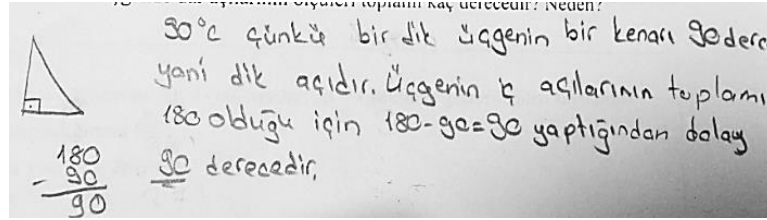 açıların ölçüleri toplamı kaç derecedir? Neden?
90°c çünkü bir dik üçgenin bir kenarı 90 derc
yani dik açıdır. Üçgenin iç açılarının toplamı
180 olduğu için 180-90=90 yaptığından dolay
90 derecedir.
180
- 90
90